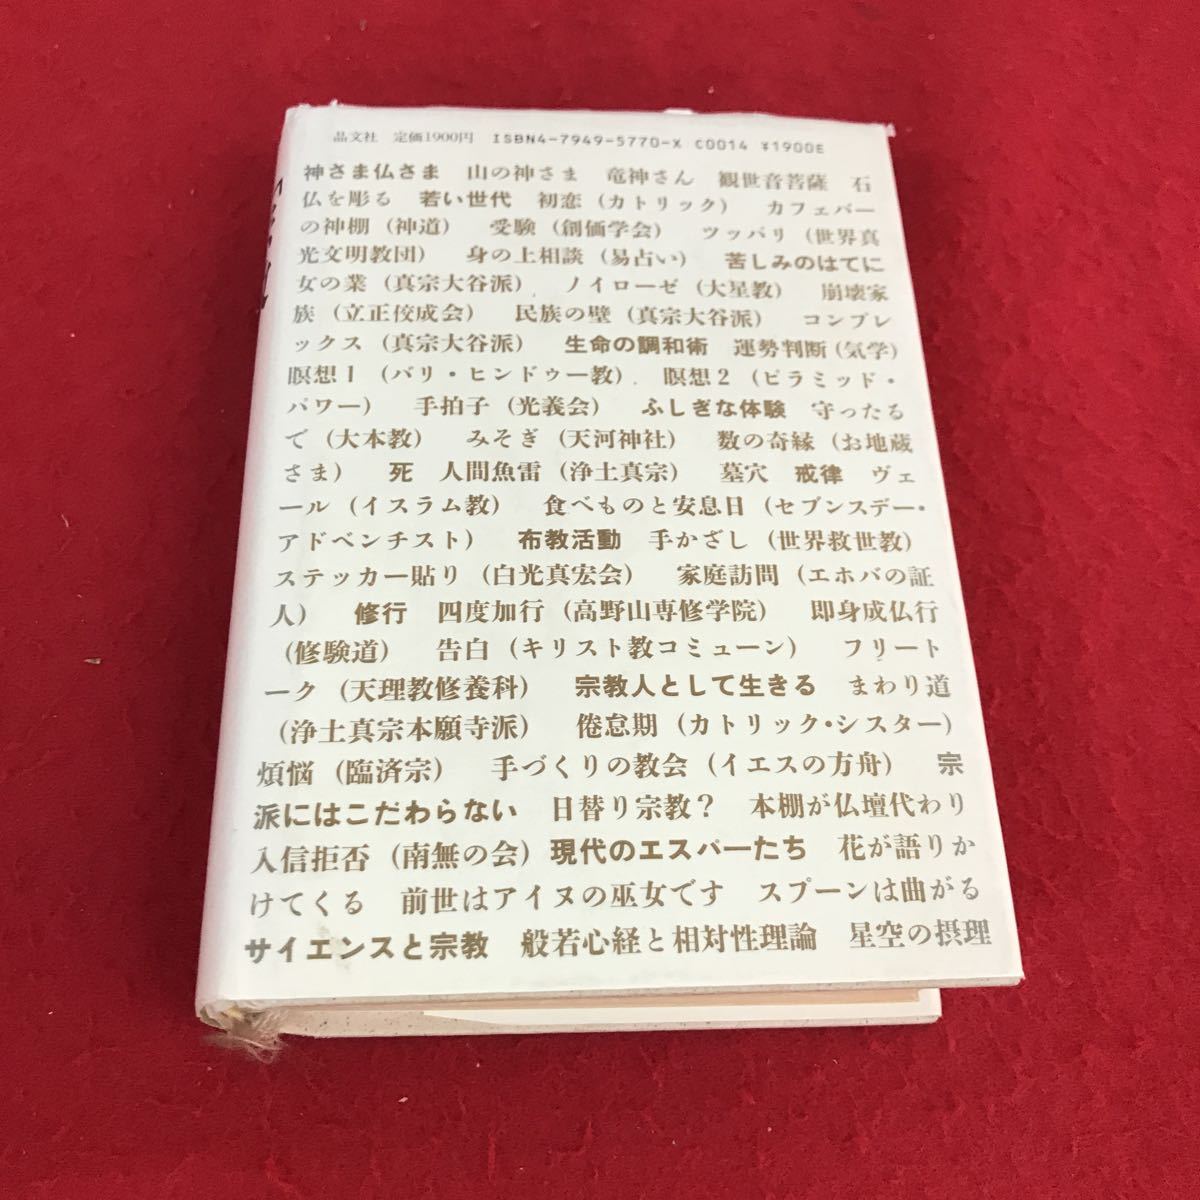 晶文社 定価1900円 ISBN4-7949-5770-X C0014 ¥1900E
神さま仏さま 山の神さま 竜神さん 観世音菩薩 石
仏を彫る 若い世代 初恋(カトリック) カフェバー
の神棚(神道) 受験(創価学会) ツッパリ(世界真
光文明教団) 身の上相談(易占い) 苦しみのはてに
女の業(真宗大谷派) ノイローゼ(大星教) 崩壊家
族(立正佼成会) 民族の壁(真宗大谷派) コンプレ
ックス(真宗大谷派) 生命の調和術 運勢判断(気学)
瞑想1(バリ・ヒンドゥー教) 瞑想2(ピラミッド・
パワー) 手拍子(光義会) ふしぎな体験 守ったる
で(大本教) みそぎ(天河神社) 数の奇縁(お地蔵
さま) 死 人間魚雷(浄土真宗) 墓穴 戒律 ヴェ
ール(イスラム教) 食べものと安息日(セブンスデー・
アドベンチスト) 布教活動 手かざし(世界救世教)
ステッカー貼り(白光真宏会) 家庭訪問(エホバの証
人) 修行 四度加行(高野山専修学院) 即身成仏行
(修験道) 告白(キリスト教コミューン) フリート
ーク(天理教修養科) 宗教人として生きる まわり道
(浄土真宗本願寺派) 倦怠期(カトリック・シスター)
煩悩(臨済宗) 手づくりの教会(イエスの方舟) 宗
派にはこだわらない 日替り宗教? 本棚が仏壇代わり
入信拒否(南無の会) 現代のエスパーたち 花が語りか
けてくる 前世はアイヌの巫女です スプーンは曲がる
サイエンスと宗教 般若心経と相対性理論 星空の摂理